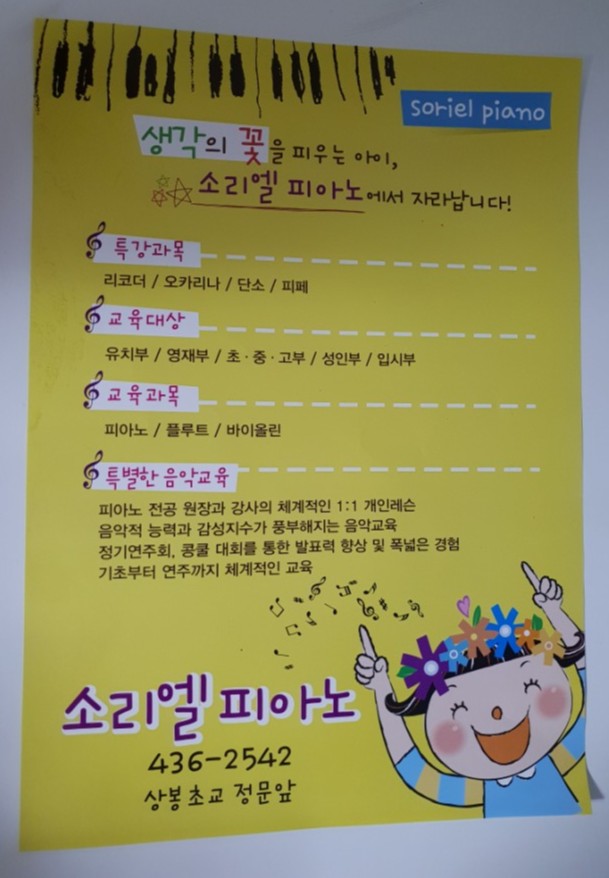 soriel piano
생각의 꽃을 피우는 아이,
소리엘 피아노에서 자라납니다!
특강과목
리코더 / 오카리나 / 단소 / 피페
교육대상
유치부 / 영재부 / 초·중·고부 / 성인부 / 입시부
교육과목
피아노 / 플루트 / 바이올린
특별한 음악교육
피아노 전공 원장과 강사의 체계적인 1:1 개인레슨
음악적 능력과 감성지수가 풍부해지는 음악교육
정기연주회, 콩쿨 대회를 통한 발표력 향상 및 폭넓은 경험
기초부터 연주까지 체계적인 교육
소리엘 피아노
436-2542
상봉초교 정문앞